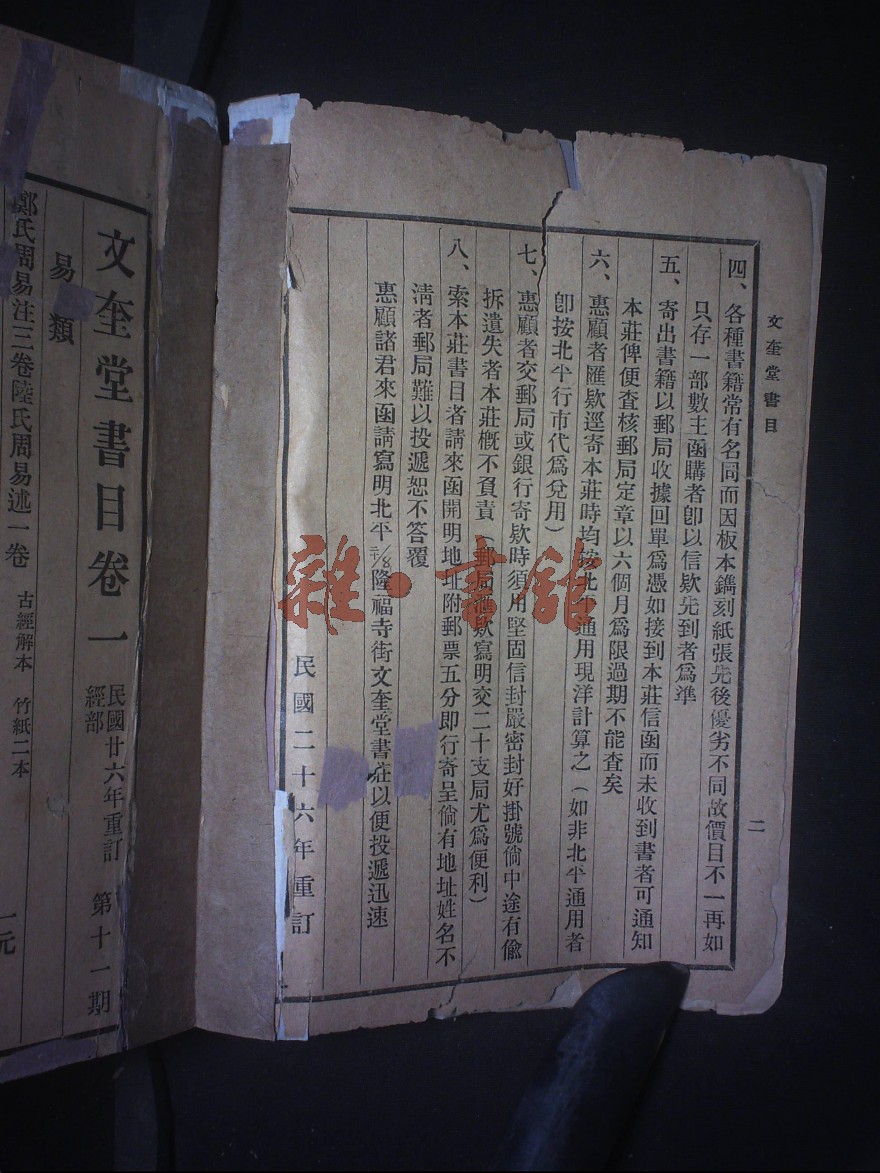 文奎堂書目
二
四、各種書籍常有名同而因板本鐫刻紙張先後優劣不同故價目不一再如
只存一部數主函購者卽以信欵先到者爲準
五、寄出書籍以郵局收據回單爲憑如接到本莊信函而未收到書者可通知
本莊俾便查核郵局定章以六個月爲限過期不能查矣
六、惠顧者匯欵逕寄本莊時均按北平通用現洋計算之（如非北平通用者
卽按北平行市代爲兌用）
七、惠顧者交郵局或銀行寄欵時須用堅固信封嚴密封好掛號倘中途有偸
拆遺失者本莊槪不負責（郵局匯欵寫明交二十支局尤爲便利）
八、索本莊書目者請來函開明地址附郵票五分即行寄呈倘有地址姓名不
淸者郵局難以投遞恕不答覆
惠顧諸君來函請寫明北平隆福寺街文奎堂書莊以便投遞迅速
民國二十六年重訂
文奎堂書目卷一
民國廿六年重訂 第十一期
經部
易類
鄭氏周易注三卷陸氏周易述一卷 古經解本 竹紙二本 一元
雜·書館